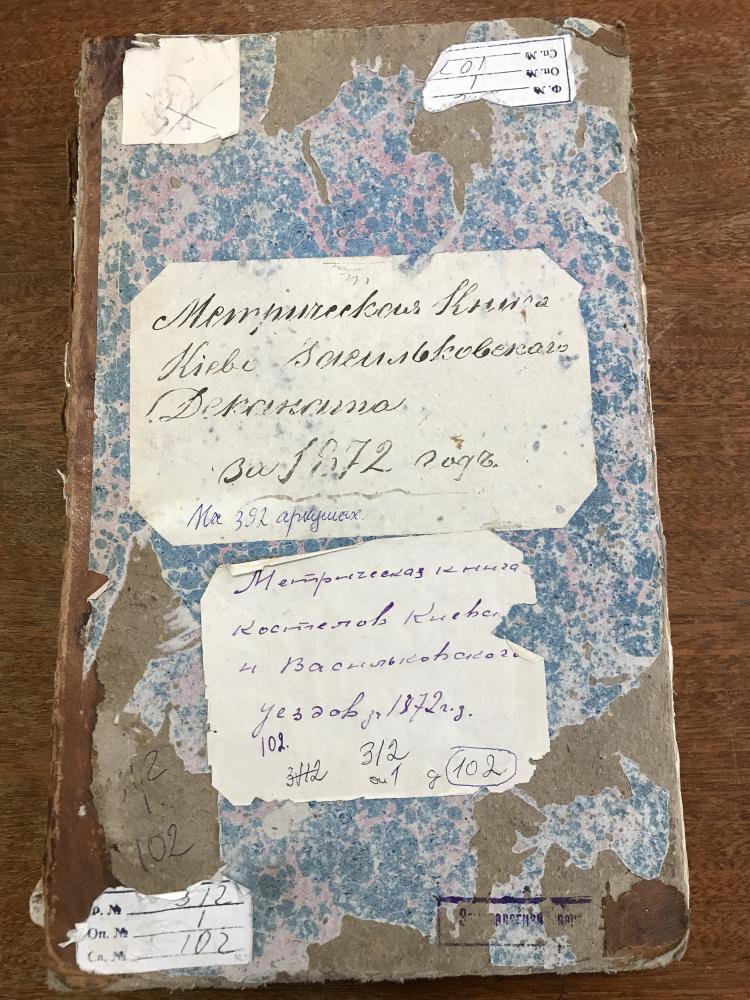 Ф. №
Оп. № 1
Сп. № 107
Метрическая Книга
Кіево Васильковскаго
Деканата
за 1872 годъ.
На 392 аркушах.
Метрическая книга
костелов Киевс
и Васильковского
уездов за 1872 г.
102.
312 312
оп 1 д 102
1
102
Ф. № 312
Оп. № 1
Сп. № 102